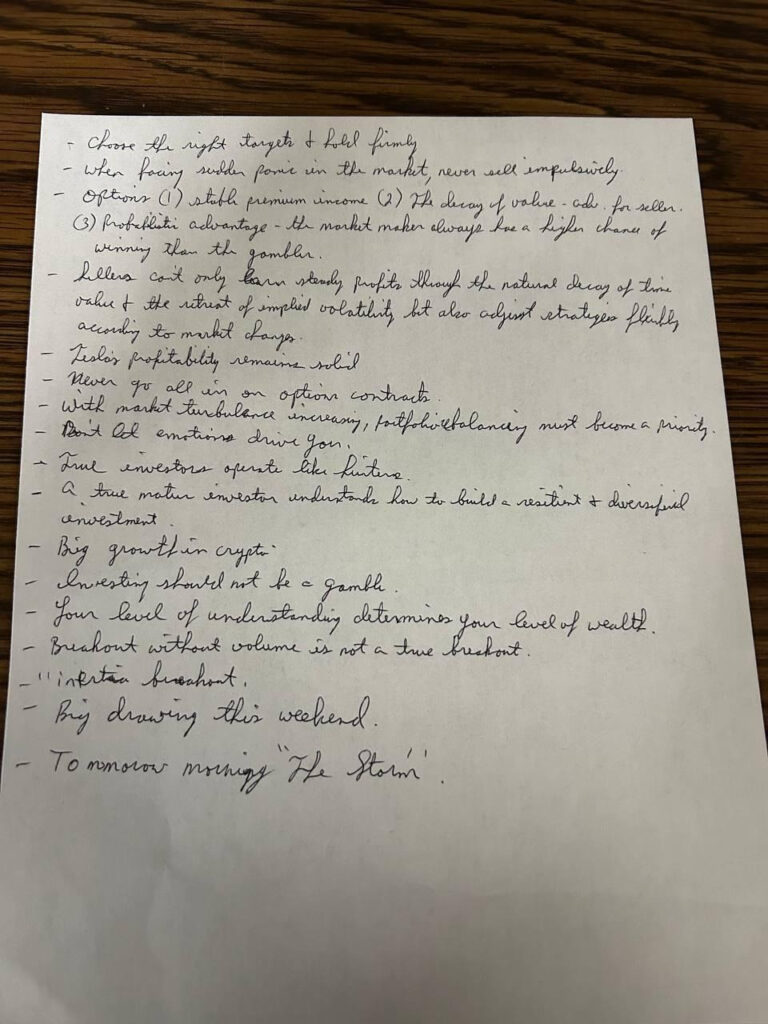 - Choose the right targets & hold firmly
- When facing sudden panic in the market, never sell impulsively.
- Options (1) stable premium income (2) The decay of value - adv. for seller.
(3) Probabilistic advantage - the market maker always has a higher chance of
winning than the gambler.
- Sellers can't only earn steady profits through the natural decay of time
value & the retreat of implied volatility but also adjust strategies flexibly
according to market changes.
- Tesla's profitability remains solid
- Never go all in on options contracts.
- With market turbulence increasing, portfolio rebalancing must become a priority.
- Don't let emotions drive you.
- True investors operate like hunters.
- A true matur investor understands how to build a resilient & diversified
investment.
- Big growth in crypto
- Investing should not be a gamble.
- Your level of understanding determines your level of wealth.
- Breakout without volume is not a true breakout.
- "inertia breakout.
- Big drawing this weekend.
- Tommorow morning "The Storm".